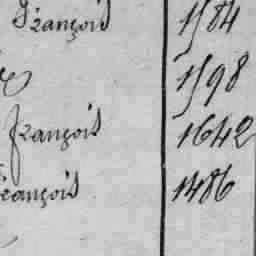 François 1584
1598
François 1642
François 1486